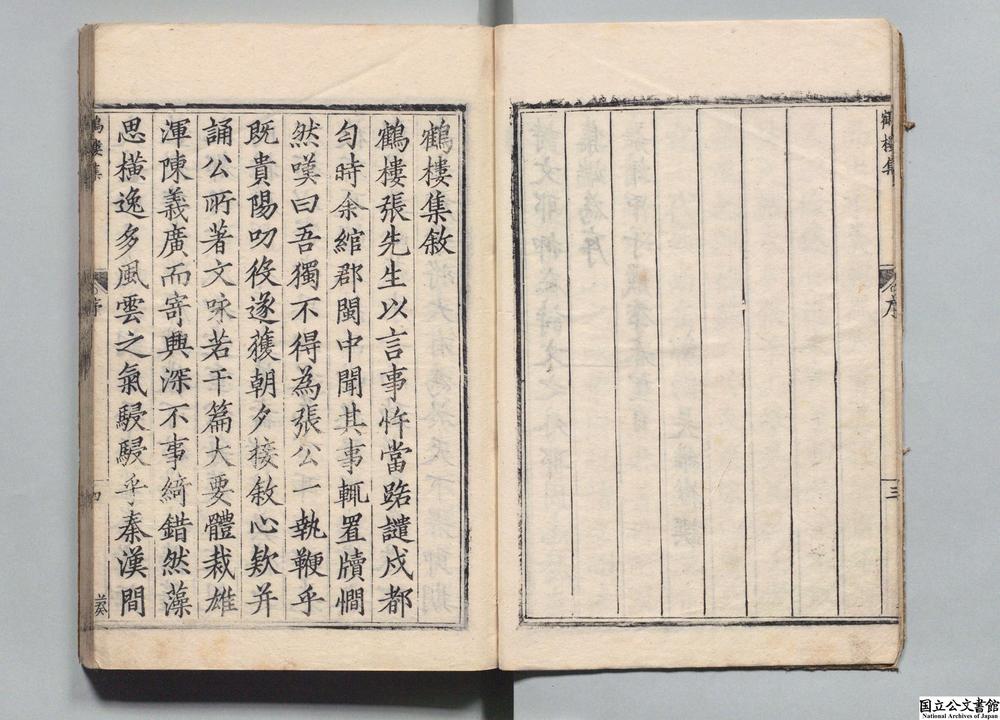 鶴樓集
序
三
鶴樓集敘
鶴樓張先生以言事忤當路譴戍都
勻時余綰郡閩中聞其事輒置牘憪
然嘆曰吾獨不得為張公一執鞭乎
既貴陽叨役遂獲朝夕棪敘心欵并
誦公所著文咏若干篇大要體栽雄
渾陳義廣而寄興深不事綺錯然藻
思橫逸多風雲之氣駸駸乎秦漢間
鶴樓集
序
四
国立公文書館
National Archives of Japan